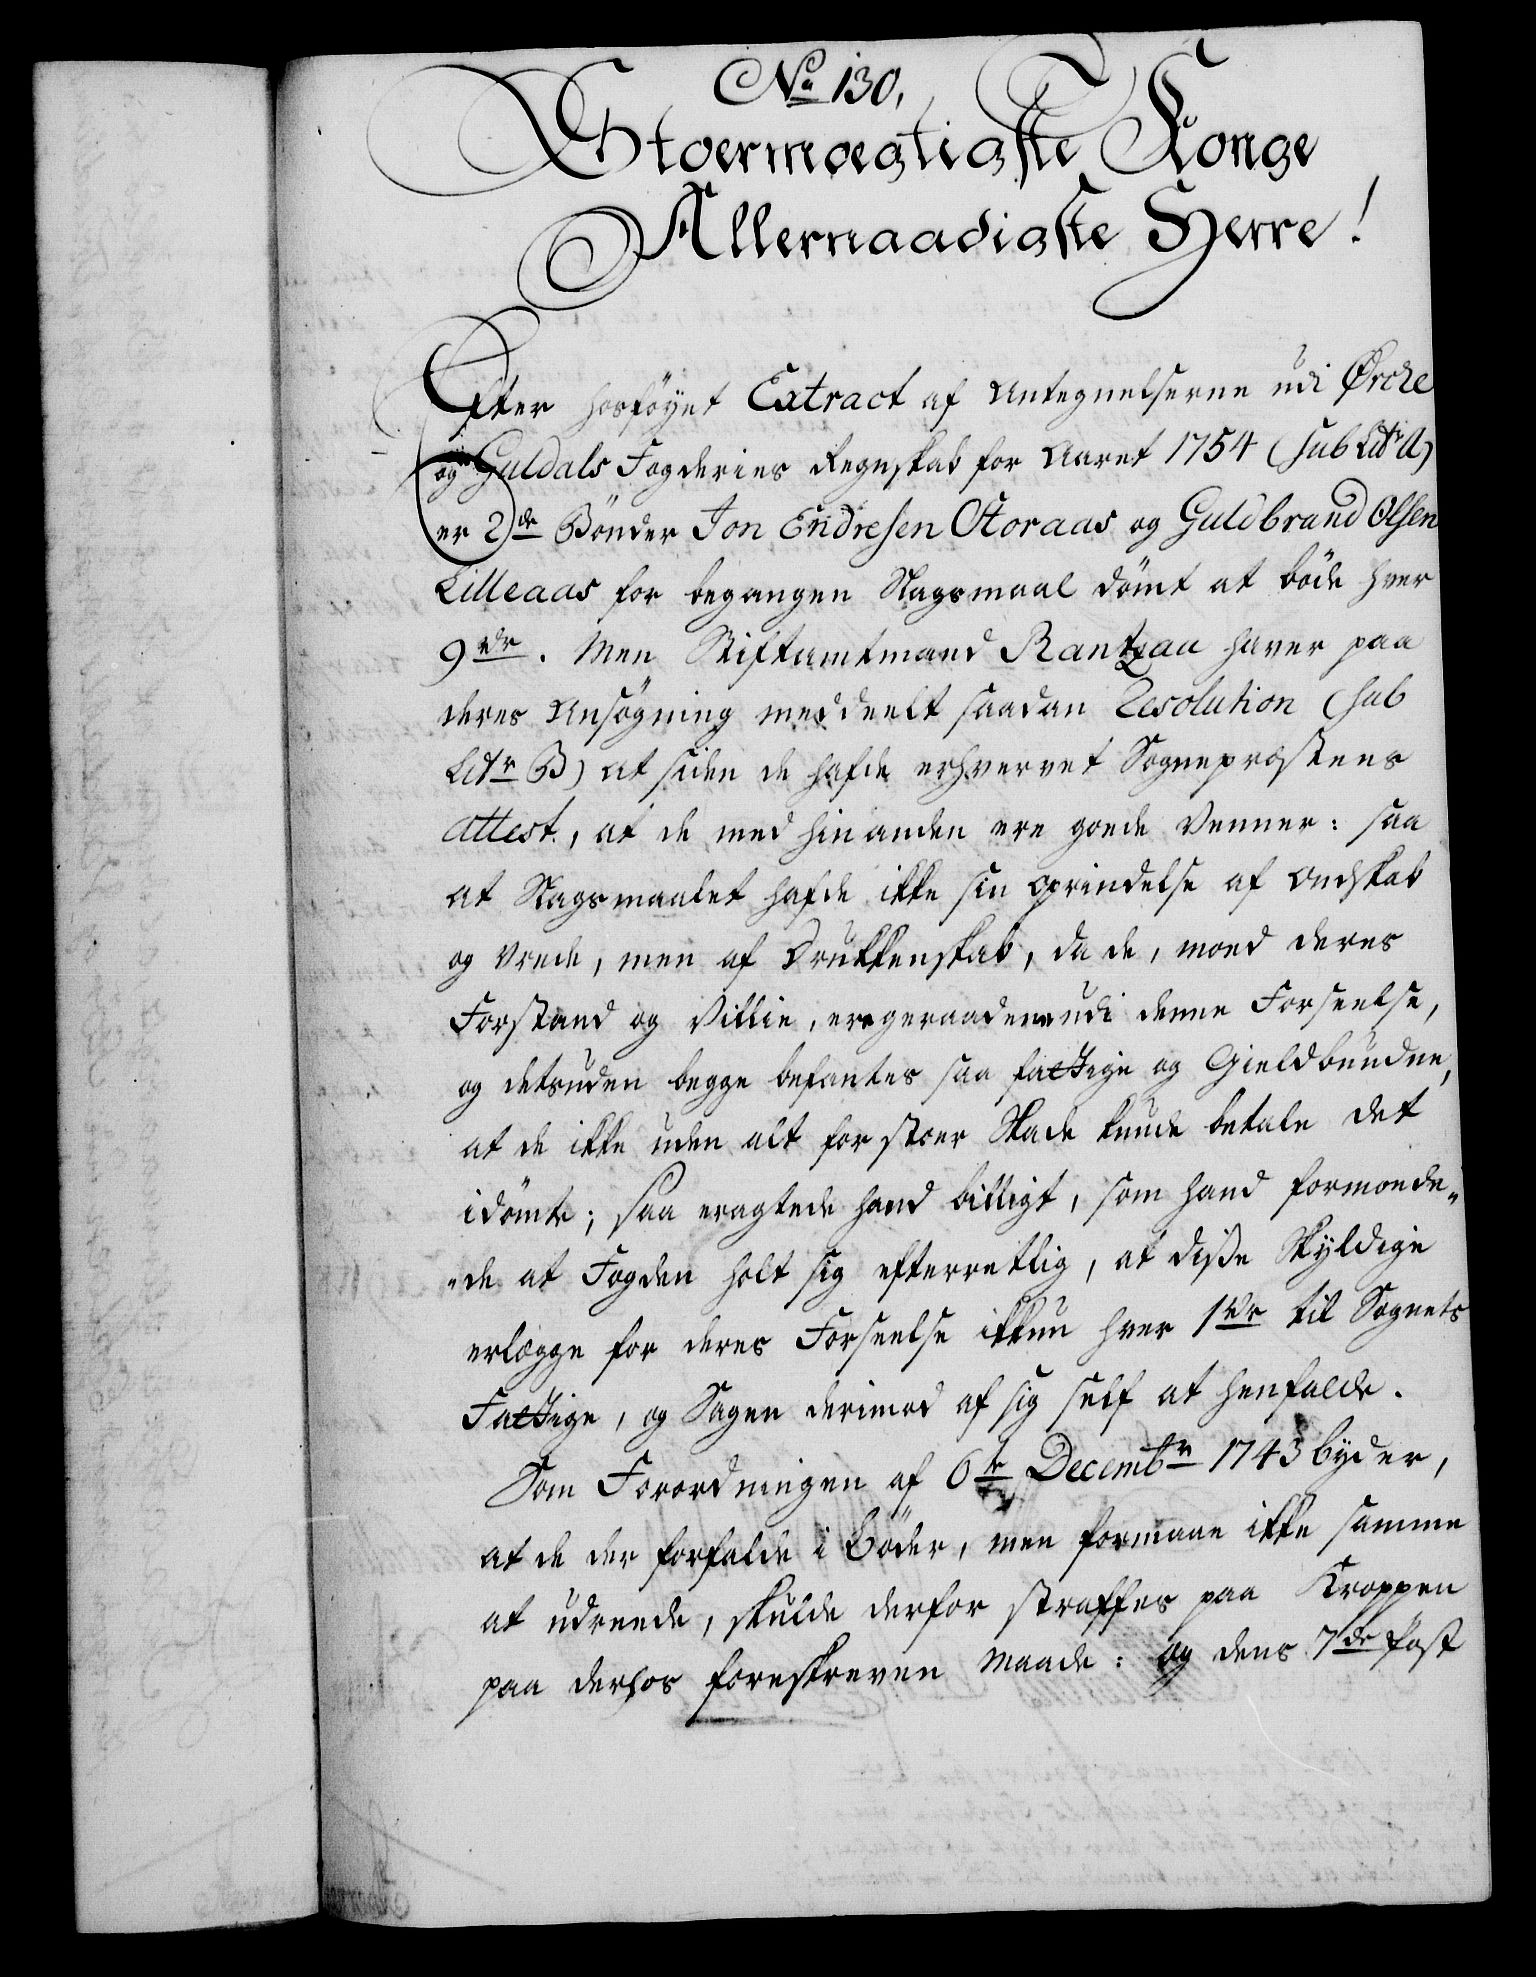 No 130,
Stoermægtigste Konge
Allernaadigste Herre!
Efter hosföyet Extract af Antegnelserne udi Ørche
og Guldals Fogderies Regnskab for Aaret 1754 (sub Litr A)
er 2de Bönder Jon Endresen Storaas og Guldbrand Olsen
Lilleaas for begangen Slagsmaal dömt at böde hver
9 rdr. Men Stiftamtmand Rantzau haver paa
deres Ansögning meddeelt saadan Resolution (sub
Litr B) at siden de hafde erhvervet Sognepræstens
Attest., at de med hinanden ere goede Venner: saa
at Slagsmaalet hafde ikke sin Oprindelse af Ondskab
og Vrede, men af Drukkenskab, da de, moed deres
Forstand og Villie, ere geraadene udi denne Forseelse,
og desuden begge befantes saa fattige og Gieldbundne,
at de ikke uden alt for stoer Skade kunde betale det
idömte; saa eragtede hand billigt, som hand formoede-
-de at Fogden holt sig efterretlig, at disse Skyldige
erlægge for deres Forseelse ikkun hver 1 rdr til Sognets
Fattige, og Sagen derimod af sig self at henfalde.
Som Forordningen af 6te Decembr 1743 byder,
at de der forfalde i Böder, men formaae ikke samme
at udreede, skulde derfor straffes paa Kroppen
paa derhos foreskreven Maade: og dens 7de Post